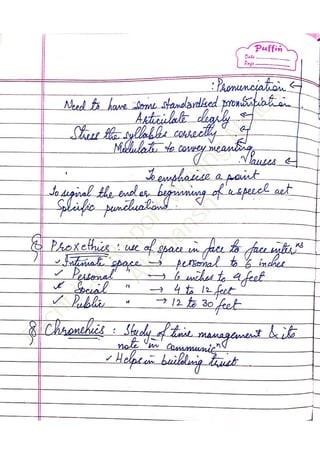 Puffin
Date
Page
: Pronunciation ←
Need to have some standardised pronunciation.
Articulate clearly ←
Stress the syllables correctly ←
Modulate to convey meaning
Pauses ←
To emphasise a point
To signal the end or beginning of a speech act
Specific punctuations.
Proxethics : use of space in face to face inter^ns
✓ Intimate space → personal to 6 inches
✓ Personal " → 6 inches to 4 feet
✓ Social " → 4 to 12 feet
✓ Public " → 12 to 30 feet
Chronehics : Study of time management & its
note in communic^n
✓ Helps in building trust